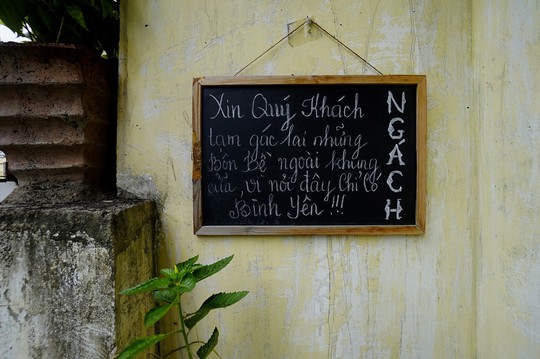 Xin Quý Khách
tạm gác lại những
Bộn Bề ngoài khung
cửa, vì nơi đây chỉ có
Bình Yên !!!
NGÁCH